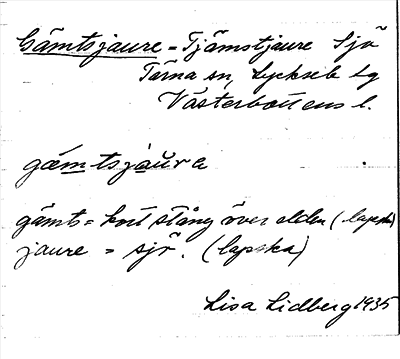 Gämtsjaure = Tjämstjaure Sjö
Tärna sn, Lycksele lg
Västerbottens l.
gämtsjaŭra
gämts = kort stång över elden (lapska)
jaure = sjö. (lapska)
Lisa Lidberg 1935